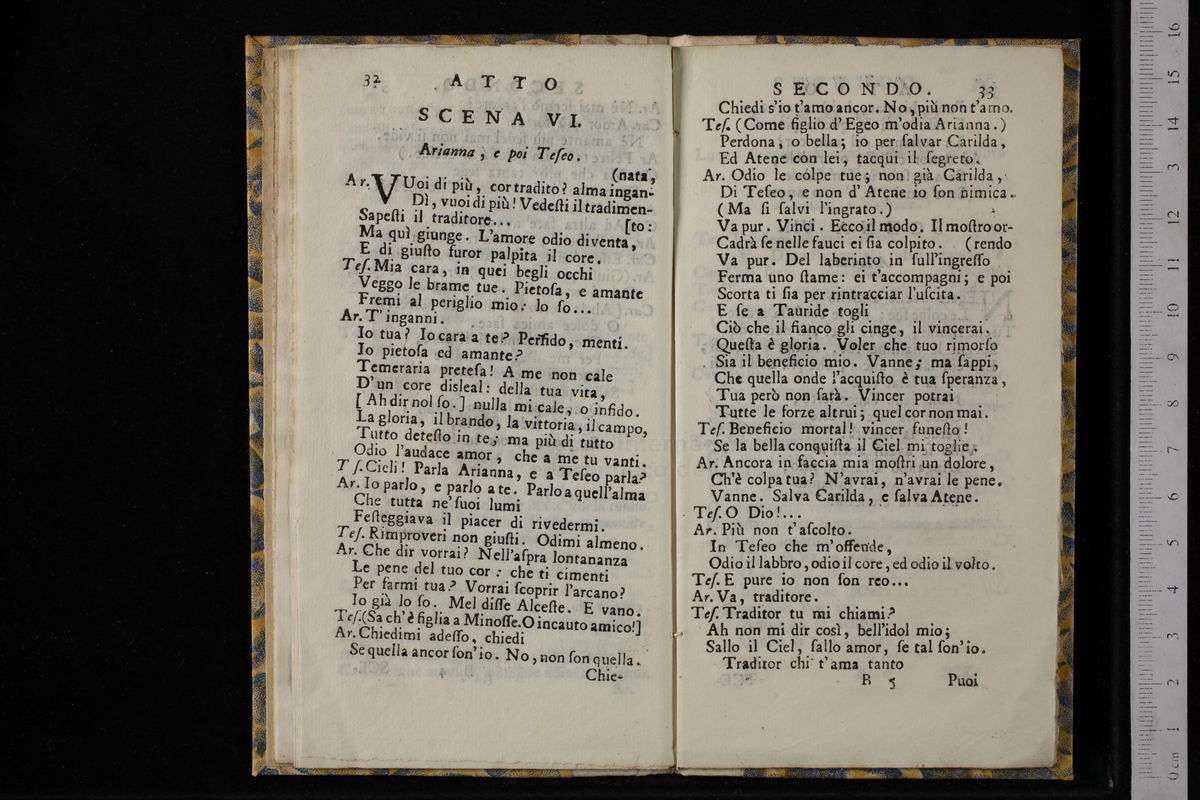 32 ATTO
SCENA VI.
Arianna, e poi Teseo.
(nata,
Ar. VUoi di più, cor tradito? alma ingan-
Dì, vuoi di più! Vedesti il tradimen-
Sapesti il traditore... [to:
Ma quì giunge. L'amore odio diventa,
E di giusto furor palpita il core.
Tes. Mia cara, in quei begli occhi
Veggo le brame tue. Pietosa, e amante
Fremi al periglio mio: lo so...
Ar. T'inganni.
Io tua? Io cara a te? Perfido, menti.
Io pietosa ed amante?
Temeraria pretesa! A me non cale
D'un core disleal: della tua vita,
[Ah dir nol so.] nulla mi cale, o infido.
La gloria, il brando, la vittoria, il campo,
Tutto detesto in te; ma più di tutto
Odio l'audace amor, che a me tu vanti.
T s. Cieli! Parla Arianna, e a Teseo parla?
Ar. Io parlo, e parlo a te. Parlo a quell'alma
Che tutta ne' suoi lumi
Festeggiava il piacer di rivedermi.
Tes. Rimproveri non giusti. Odimi almeno.
Ar. Che dir vorrai? Nell'aspra lontananza
Le pene del tuo cor: che ti cimenti
Per farmi tua? Vorrai scoprir l'arcano?
Io già lo so. Mel disse Alceste. E vano.
Tes. (Sa ch'è figlia a Minosse. O incauto amico!]
Ar. Chiedimi adesso, chiedi
Se quella ancor son'io. No, non son quella.
Chie-
SECONDO. 33
Chiedi s'io t'amo ancor. No, più non t'amo.
Tes. (Come figlio d'Egeo m'odia Arianna.)
Perdona, o bella; io per salvar Carilda,
Ed Atene con lei, tacqui il segreto.
Ar. Odio le colpe tue; non già Carilda,
Di Teseo, e non d'Atene io son nimica.
(Ma si salvi l'ingrato.)
Va pur. Vinci. Ecco il modo. Il mostro or-
Cadrà se nelle fauci ei sia colpito. (rendo
Va pur. Del laberinto in sull'ingresso
Ferma uno stame: ei t'accompagni; e poi
Scorta ti sia per rintracciar l'uscita.
E se a Tauride togli
Ciò che il fianco gli cinge, il vincerai.
Questa è gloria. Voler che tuo rimorso
Sia il beneficio mio. Vanne; ma sappi,
Che quella onde l'acquisto è tua speranza,
Tua però non sarà. Vincer potrai
Tutte le forze altrui; quel cor non mai.
Tes. Beneficio mortal! vincer funesto!
Se la bella conquista il Ciel mi toglie.
Ar. Ancora in faccia mia mostri un dolore,
Ch'è colpa tua? N'avrai, n'avrai le pene.
Vanne. Salva Carilda, e salva Atene.
Tes. O Dio!...
Ar. Più non t'ascolto.
In Teseo che m'offende,
Odio il labbro, odio il core, ed odio il volto.
Tes. E pure io non son reo...
Ar. Va, traditore.
Tes. Traditor tu mi chiami?
Ah non mi dir così, bell'idol mio;
Sallo il Ciel, sallo amor, se tal son'io.
Traditor chi t'ama tanto
B 5 Puoi